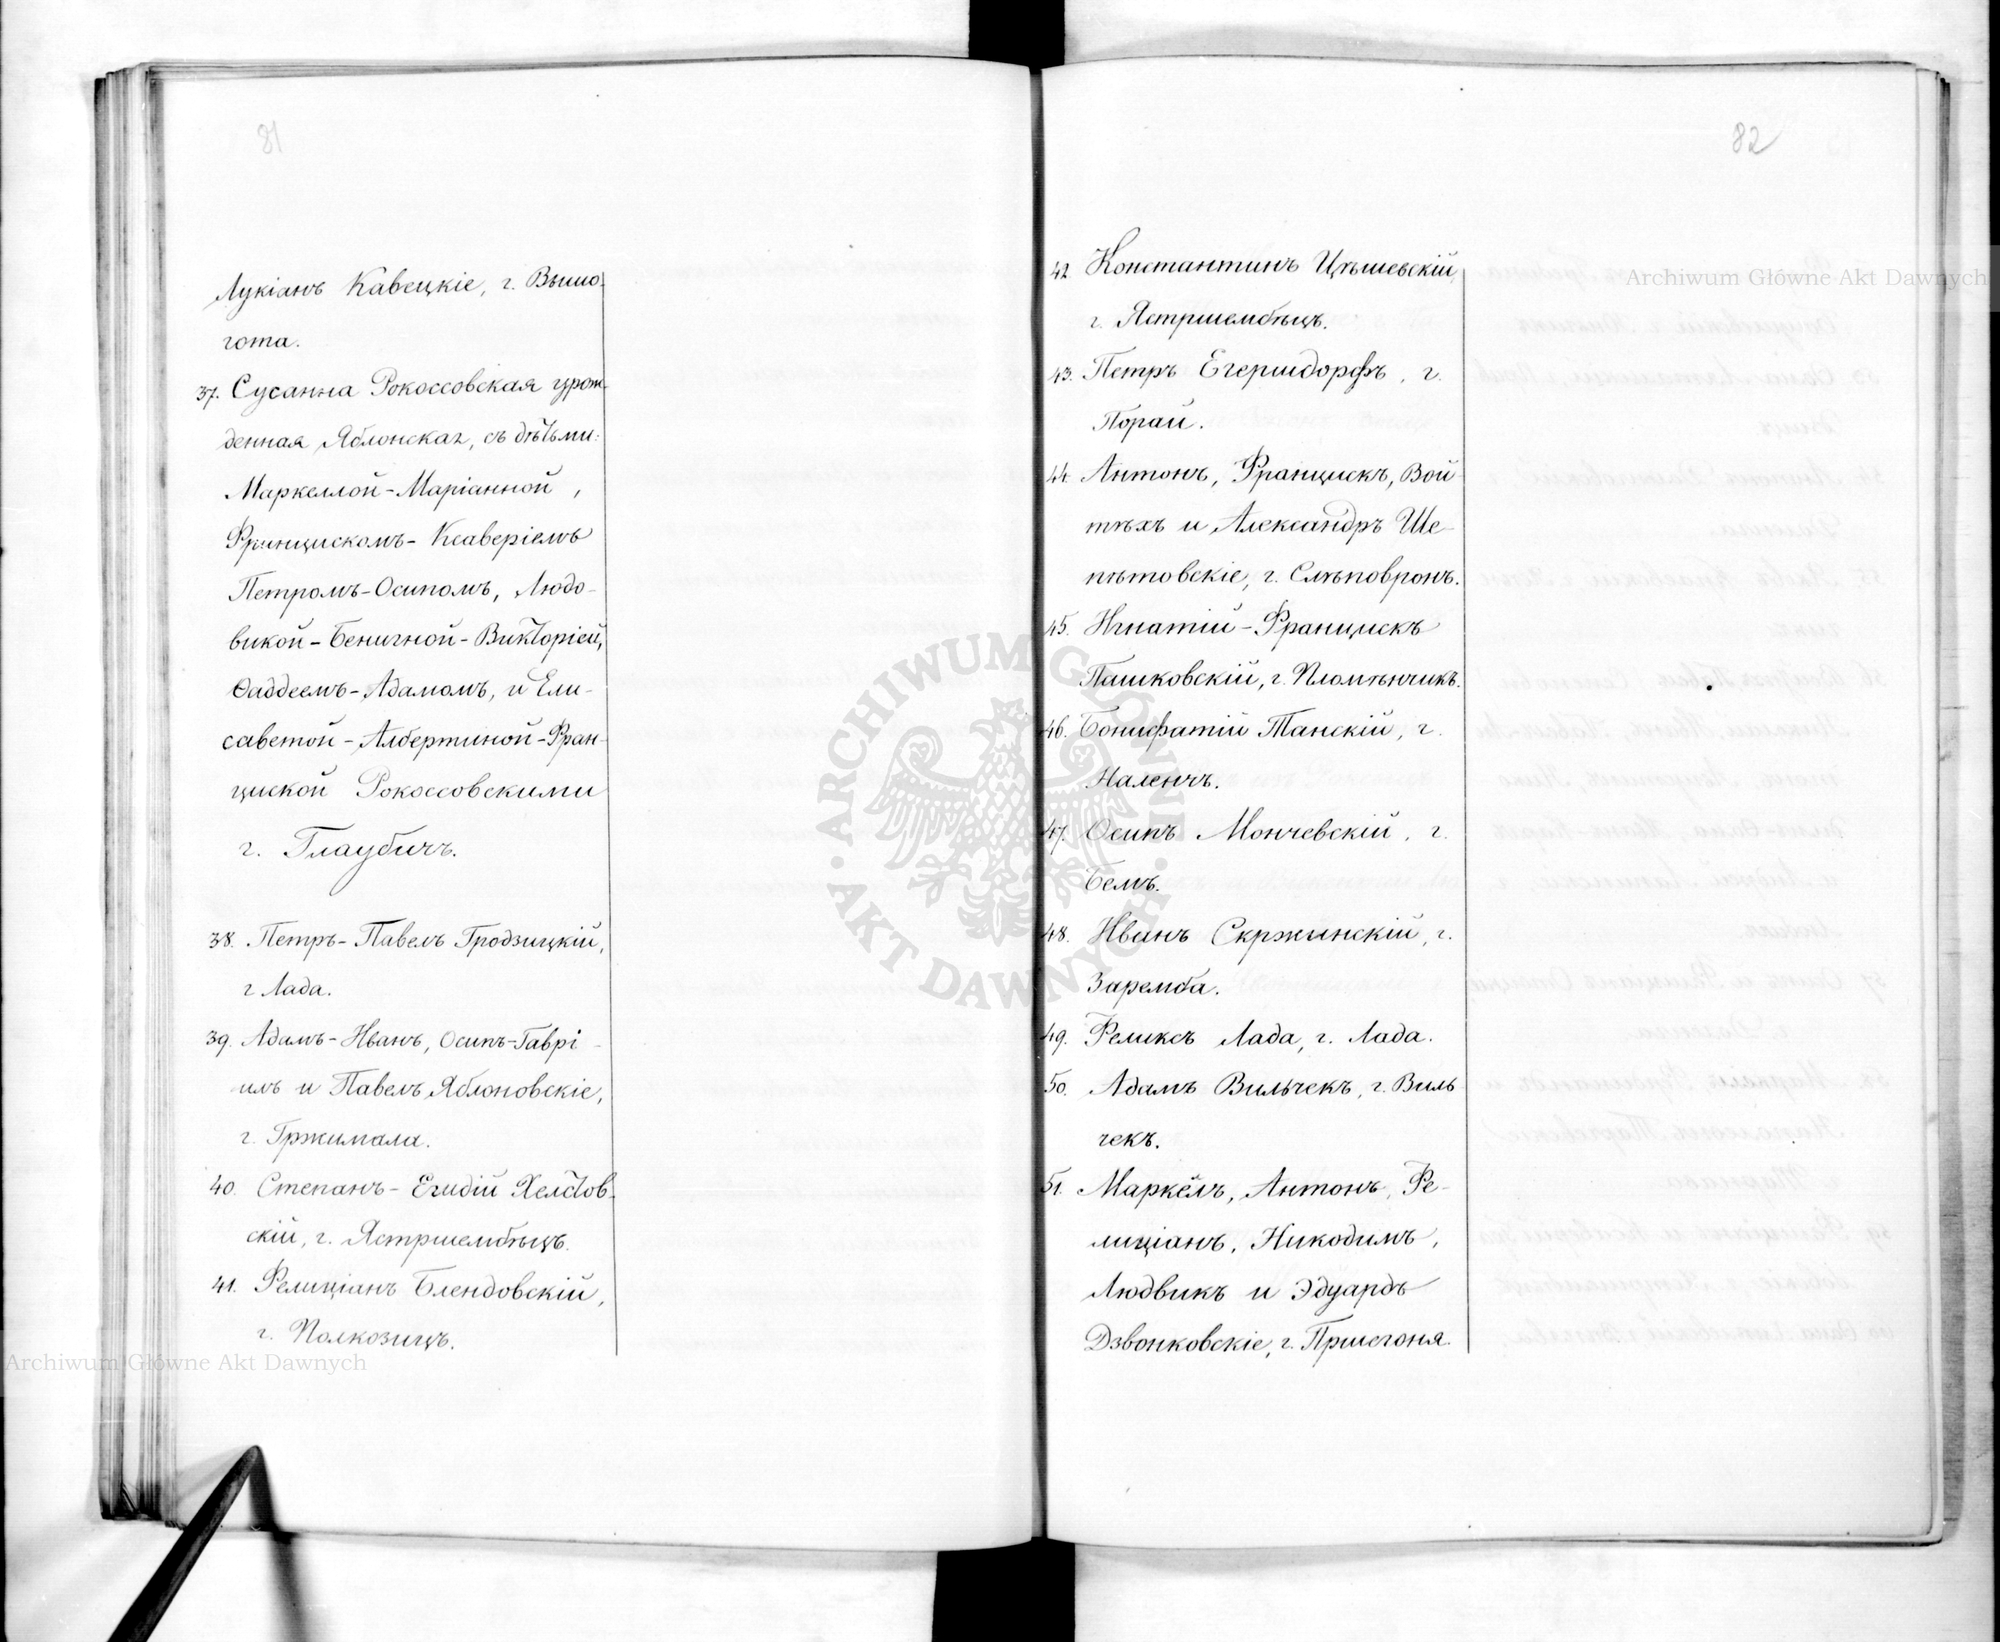 81
Лукіанъ Кавецкіе, г. Вышо-
гота.
37. Сусанна Рокоссовская урож-
денная Яблонская, съ дѣтьми:
Маркеллой-Маріанной,
Францискомъ-Ксаверіемъ
Петромъ-Осипомъ, Людо-
викой-Бенигной-Викторіей,
Фаддеемъ-Адамомъ, и Ели-
саветой-Албертиной-Фран-
циской Рокоссовскими
г. Глаубичъ.
38. Петръ-Павелъ Гродзицкій,
г Лада.
39. Адамъ-Иванъ, Осипъ-Гаврі-
илъ и Павелъ Яблоновскіе,
г. Гржимала.
40. Степанъ-Егидій Хелстов-
скій, г. Ястршембецъ.
41. Фелиціанъ Блендовскій,
г. Полкозицъ.
82
42. Константинъ Цѣшевскій,
г. Ястршембецъ.
43. Петръ Егерсдорфъ, г.
Порай.
44. Антонъ, Францискъ, Вой-
тѣхъ и Александръ Ше-
пѣтовскіе, г. Слѣповронъ.
45. Игнатій-Францискъ
Пашковскій, г. Пломѣнчикъ.
46. Бонифатій Танскій, г.
Наленчъ.
47. Осипъ Мончевскій, г.
Белъ.
48. Иванъ Скржинскій, г.
Заремба.
49. Феликсъ Лада, г. Лада.
50. Адамъ Вильчекъ, г. Виль-
чекъ.
51. Маркелъ, Антонъ, Фе-
лиціанъ, Никодимъ,
Людвикъ и Эдуардъ
Дзвонковскіе, г. Пршегоня.
Archiwum Główne Akt Dawnych
Archiwum Główne Akt Dawnych
ARCHIWUM GŁÓWNE · AKT DAWNYCH ·